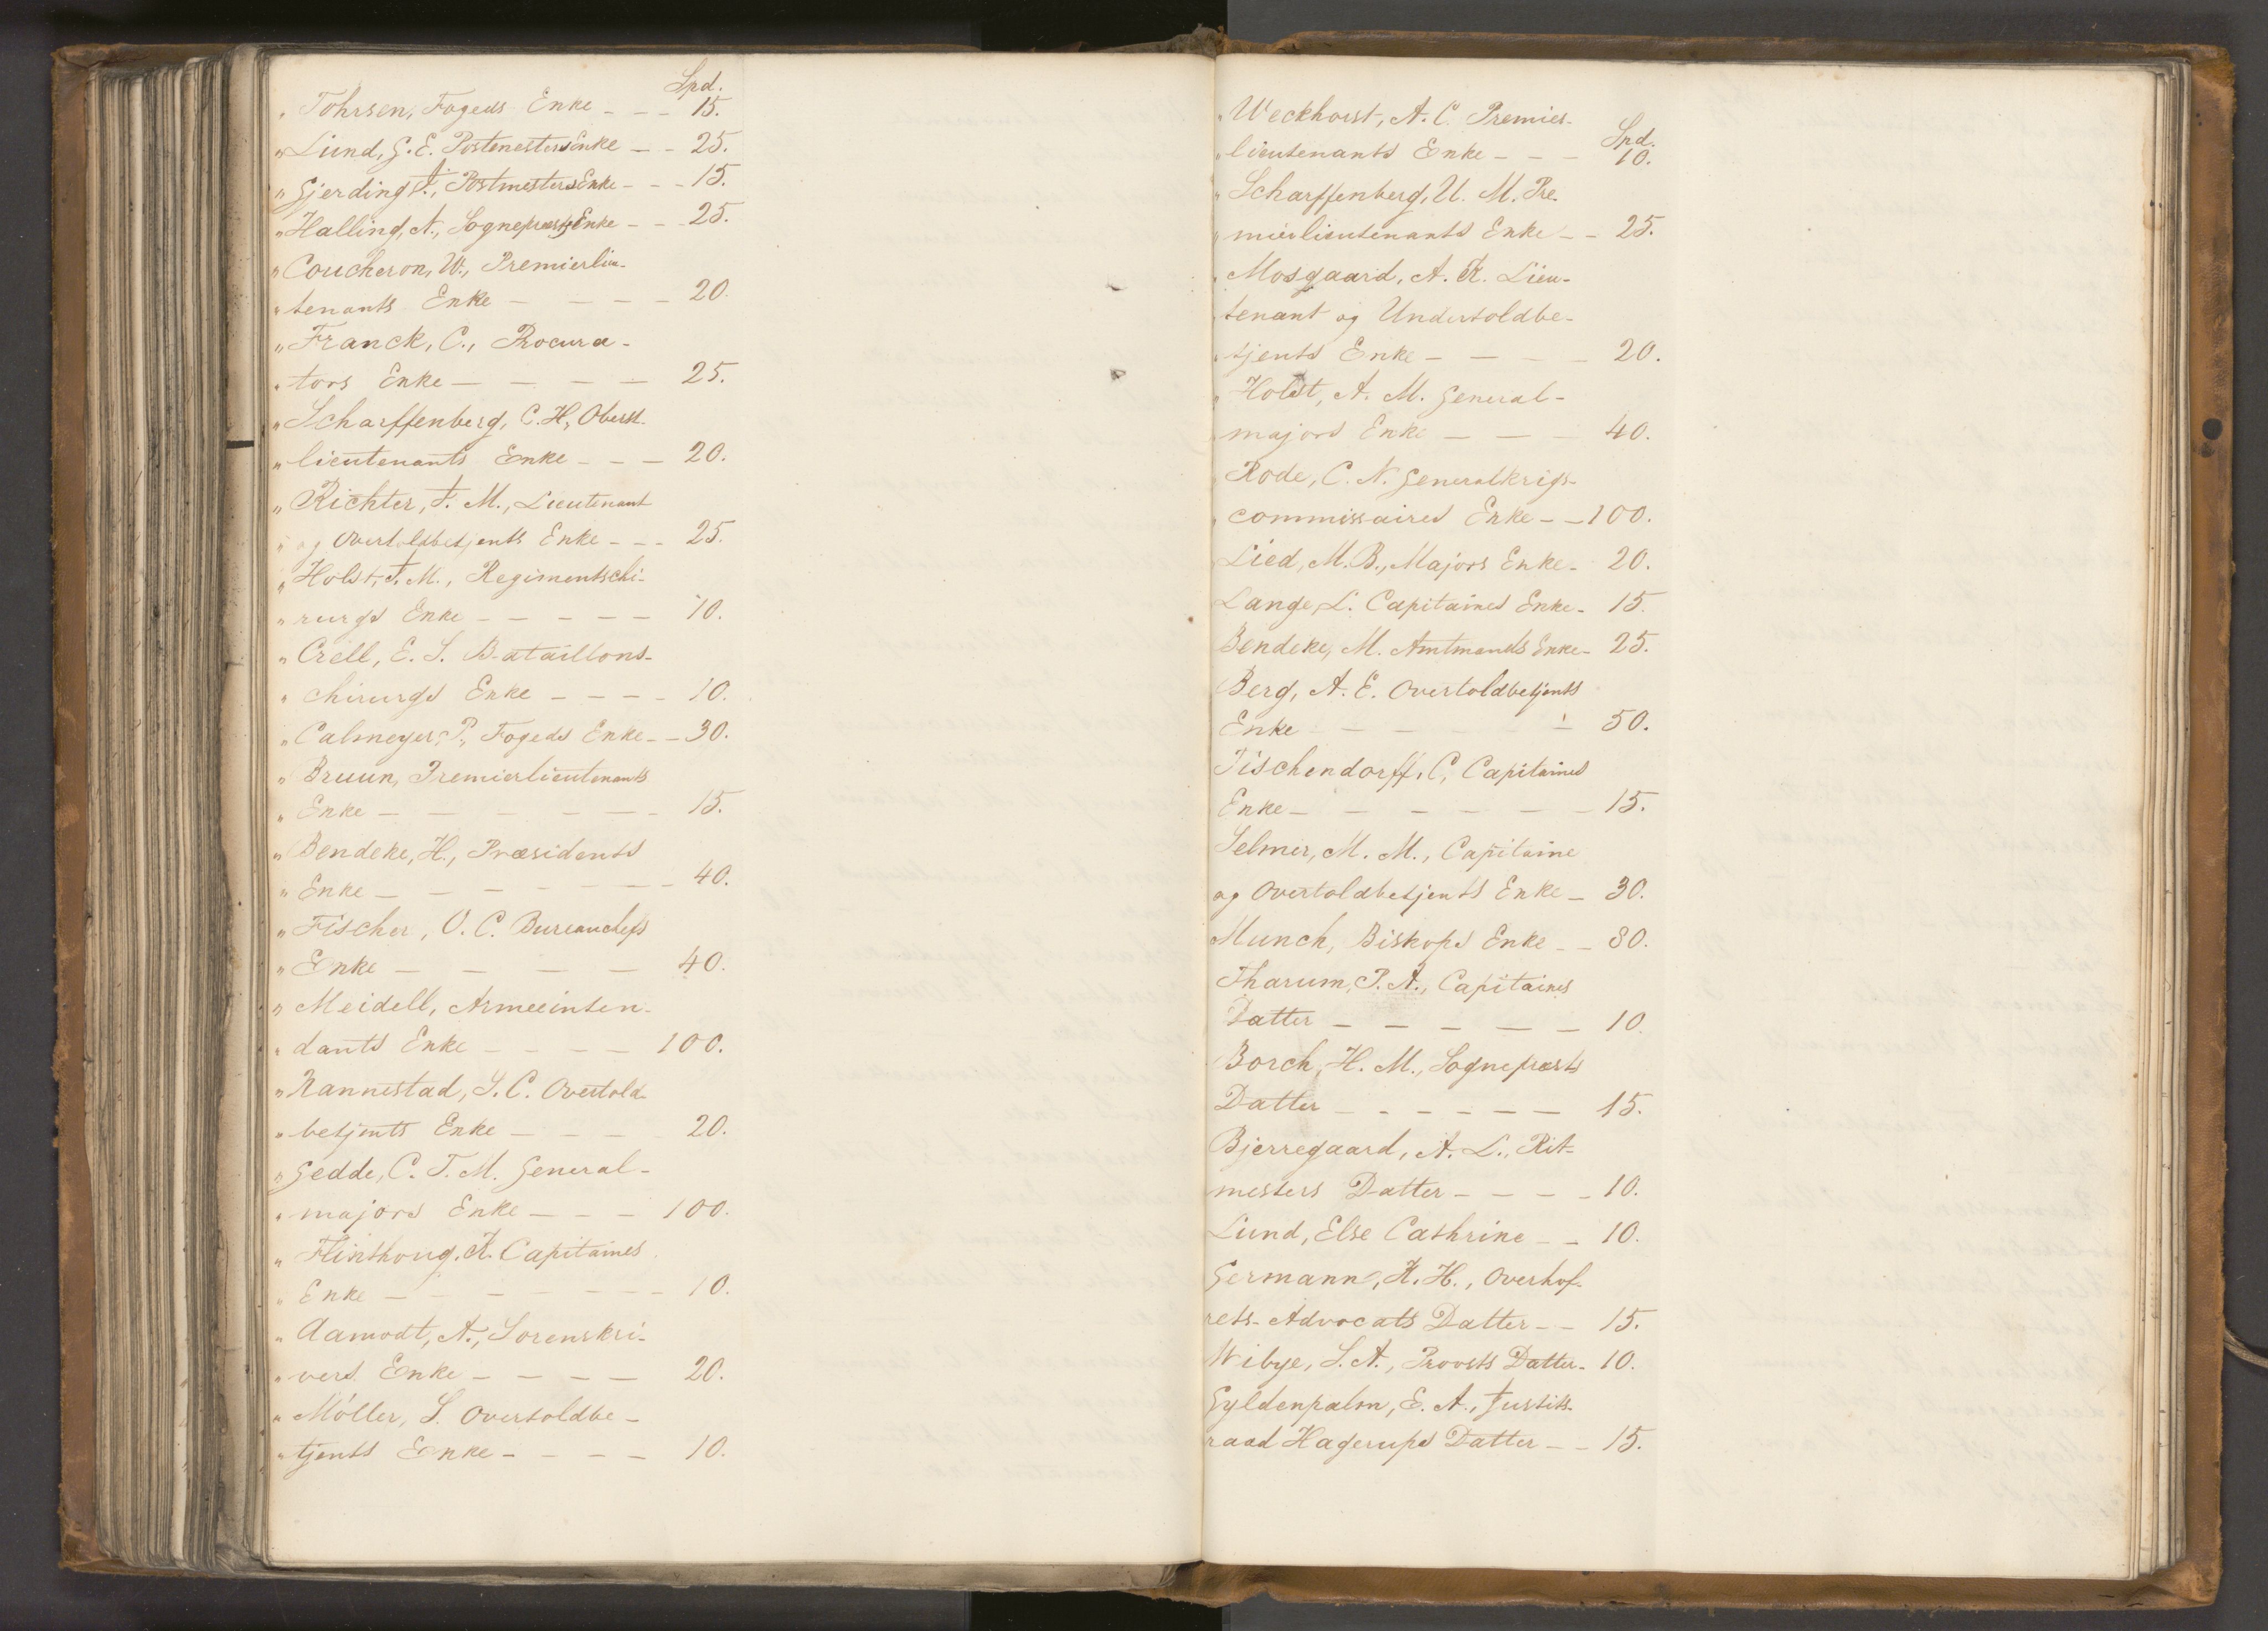 Spd.
" Tohrsen, Fogeds Enke - - - 15.
" Lund, G. E. Postmesters Enke - - 25.
" Gjerding, J., Postmesters Enke - - - 15.
" Halling, A., Sognepræsts Enke - - - 25.
" Coucheron, W., Premierlieu-
" tenants Enke - - - - - 20.
" Franck, C., Procura-
" tors Enke - - - - 25.
" Scharffenberg, C. H., Oberst-
" lieutenants Enke - - - 20.
" Richter, J. M., Lieutenant
" og Overtoldbetjents Enke - - - 25.
" Holst, J. M., Regimentschi-
" rurgs Enke - - - - - 10.
" Crell, E. S. Bataillons-
" chirurgs Enke - - - - 10.
" Calmeyer, P., Fogeds Enke - - 30.
" Bruun, Premierlieutenants
" Enke - - - - - - - 15.
" Bendeke, H., Præsidents
" Enke - - - - - - - 40.
" Fischer, O. C. Bureauchefs
" Enke - - - - - 40.
" Meidell, Armeeinten-
" dants Enke - - - - 100.
" Nannestad, S. C. Overtold-
" betjents Enke - - - 20.
" Gedde, C. T. M. General-
" majors Enke - - - 100.
" Flinthoug, K. Capitaines
" Enke - - - - - - - 10.
" Aamodt, A., Sorenskri-
" vers Enke - - - - 20.
" Möller, S. Overtoldbe-
" tjents Enke - - - - 10.
" Weckhorst, A. C. Premier-
Spd.
" lieutenants Enke - - - 10.
" Scharffenberg, U. M. Pre-
" mierlieutenants Enke - - 25.
" Mosgaard, A. K. Lieu-
tenant og Undertoldbe-
" tjents Enke - - - - 20.
" Holst, A. M. General-
majors Enke - - - 40.
Rode, C. N. Generalkrigs-
" commissaires Enke - - 100.
Lied, M. B., Majors Enke - 20.
Lange, L. Capitaines Enke - 15.
Bendeke, M. Amtmands Enke - 25.
Berg, A. E. Overtoldbetjents
Enke - - - - - - 50.
Tischendorff, C. Capitaines
Enke - - - - - - 15.
Selmer, M. M., Capitaine
og Overtoldbetjents Enke - 30.
Munch, Biskops Enke - - 80.
Tharum, P. A., Capitaines
Datter - - - - - 10.
Borch, H. M., Sognepræsts
Datter - - - - - - 15.
Bjerregaard, A. L., Rit-
mesters Datter - - - - 10.
Lund, Else Cathrine - - 10.
Germann, K. H., Overhof-
rets-Advocats Datter - - 15.
Wibye, S. A., Provsts Datter - 10.
Gyldenpalm, E. A., Justits-
raad Hagerups Datter - - 15.